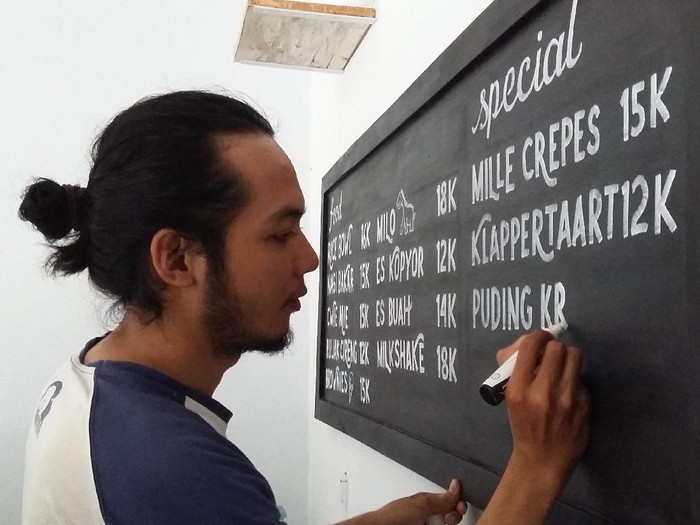 special
MILLE CREPES 15K
KLAPPERTAART 12K
PUDING KR
food
RICE BOWL 16K
15K
15K
12K
BROWNIES 15K
MILO 18K
ES KOPYOR 12K
ES BUAH 14K
MILKSHAKE 18K